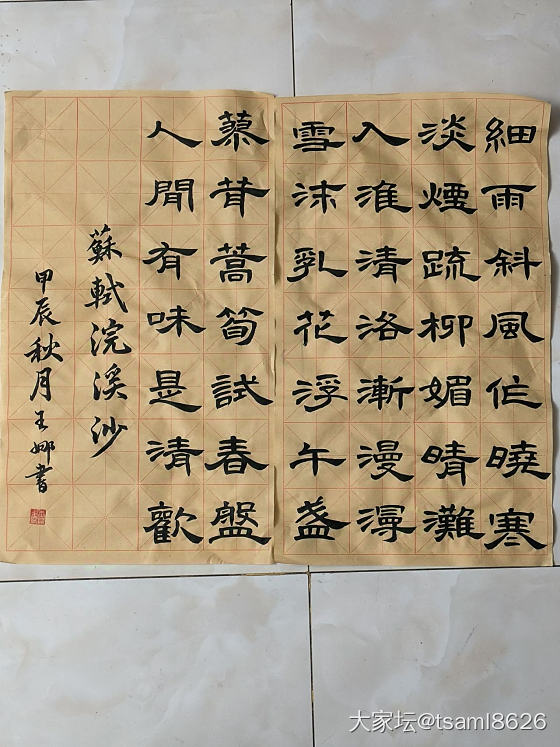 細雨斜風作曉寒
淡煙疏柳媚晴灘
入淮清洛漸漫漫
雪沫乳花浮午盞
蓼茸蒿筍試春盤
人間有味是清歡
蘇軾浣溪沙
甲辰秋月王娜書
大家坛@tsaml8626